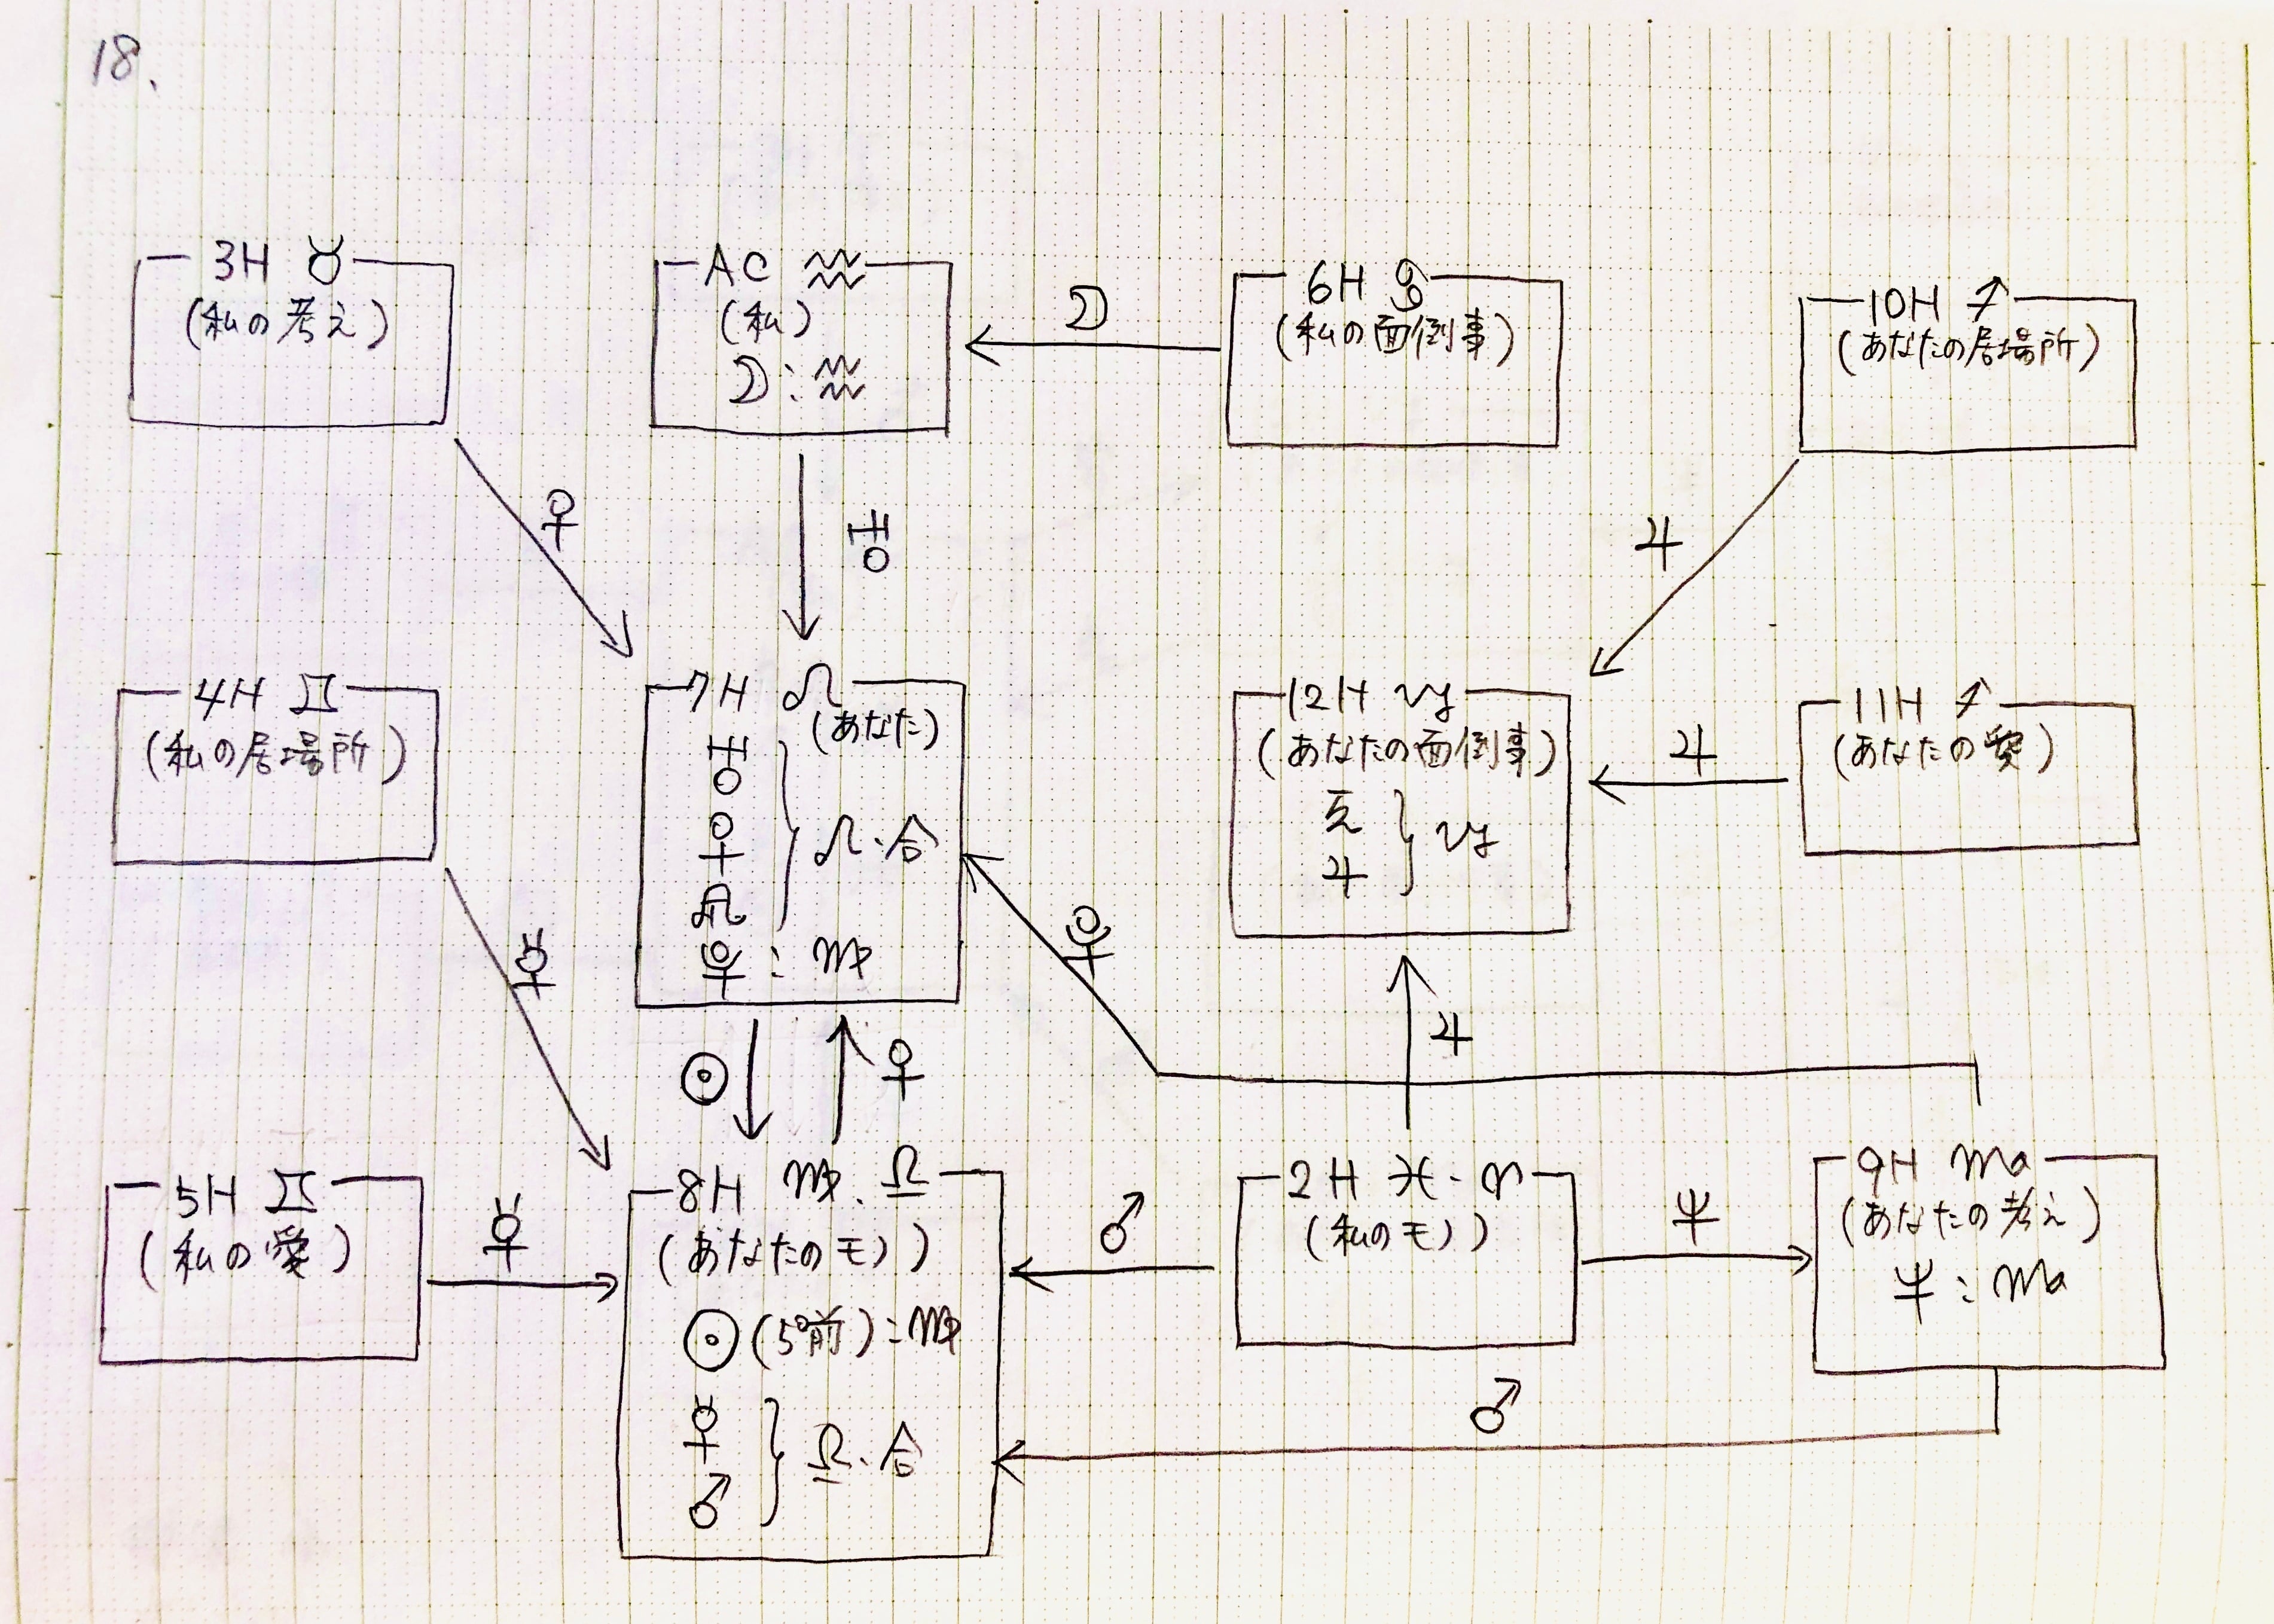 18.
3H ♉
(私の考え)
AC ♒
(私)
☽:♒
☽
6H ♋
(私の面倒事)
10H ♐
(あなたの居場所)
♀
♅
♃
4H ♊
(私の居場所)
7H ♌
(あなた)
♅
♀
♌・合
☊
⯓:♍
12H ♑
(あなたの面倒事)
♑
♃
♃
11H ♐
(あなたの愛)
☿
⯓
☉
♀
♃
5H ♊
(私の愛)
☿
8H ♍.♎
(あなたのモノ)
☉(5°前):♍
☿
♎.合
♂
♂
2H ♓・♈
(私のモノ)
♆
9H ♏
(あなたの考え)
♆:♏
♂